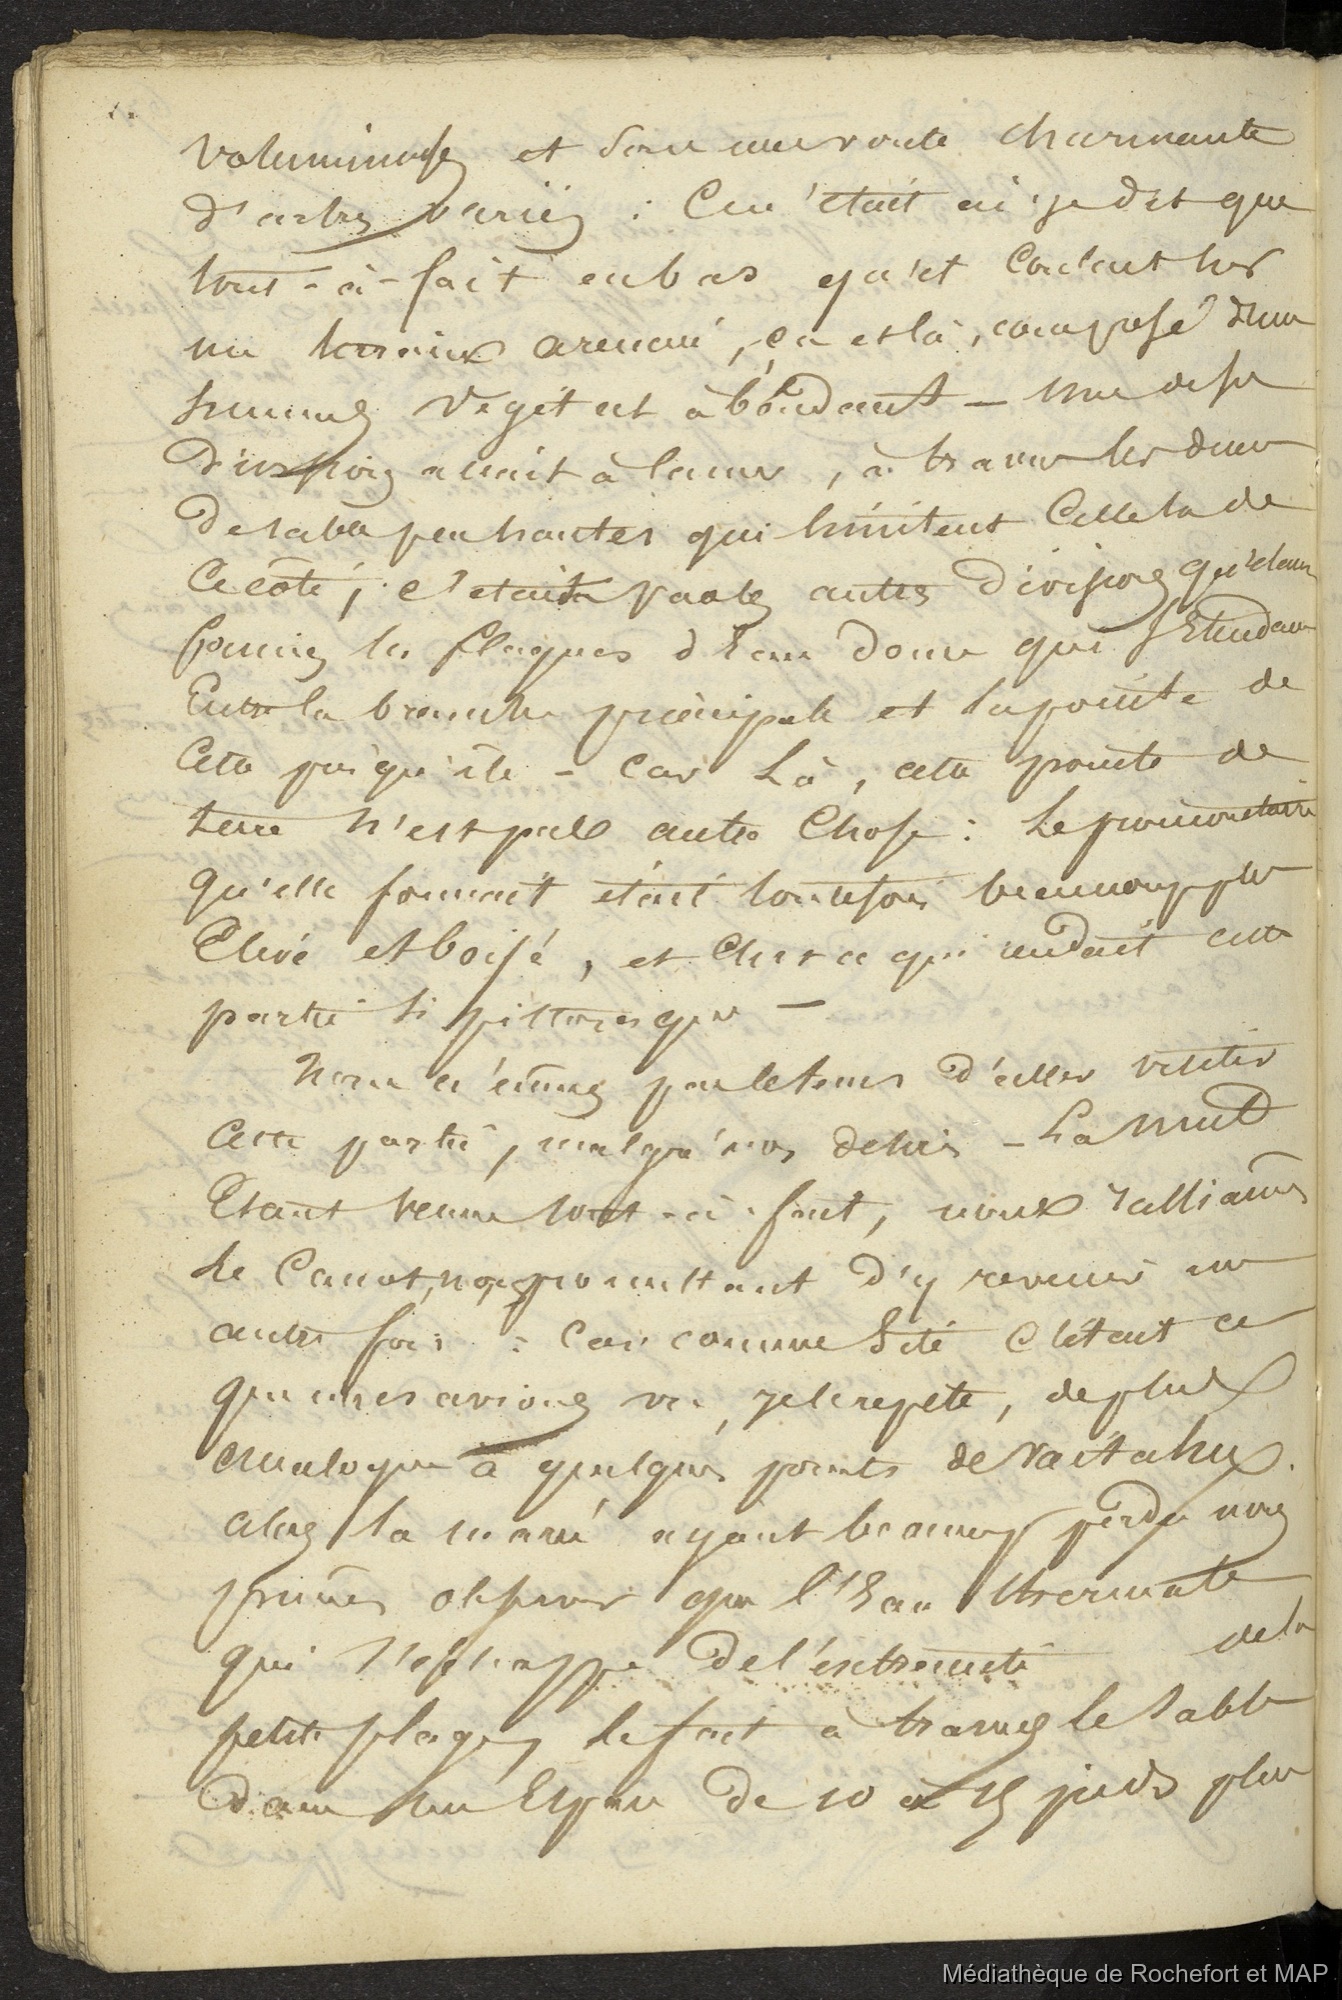 volumineuses et sous une voute charmante
d'arbres variés : Ce n'était ai-je dit que
tout-à-fait en bas qu'et coulant sur
un terrain arenacé, ça et là, composé d'un
humus végétal abondant — une de ses
divisions avait à la mer, à travers les dunes
de sable peu hautes qui limitent celle la de
ce côté; c'etait par les autres divisions qu'étaient
formées les flaques d'Eau douce qui s'Etendaient
Entre la branche principale et la pointe de
Cette presqu'ile - Car là, cette pointe de
terre n'est pas autre Chose : le promontoire
qu'elle formait était toutefois beaucoup plus
Elevé et boisé, et C'est ce qui rendait cette
partie si pittoresque —
Nous n'eumes pas le tems d'aller visiter
cette partie, malgré nos desirs - La nuit
Etant venue tout-à-fait, nous ralliames
le Canot, nous promettant d'y revenir une
autre fois : Car comme Sité C'était ce
que nous avions vu, je le repete, de plus
analogue à quelques points de Vaitahu.
alors la marée ayant beaucoup perdu nous
pumes observer que l'Eau thermale
qui s'échappe de l'extremité de la
petite plage, le fait à travers le Sable
dans un Espace de 10 à 15 pieds plus
Médiathèque de Rochefort et MAP